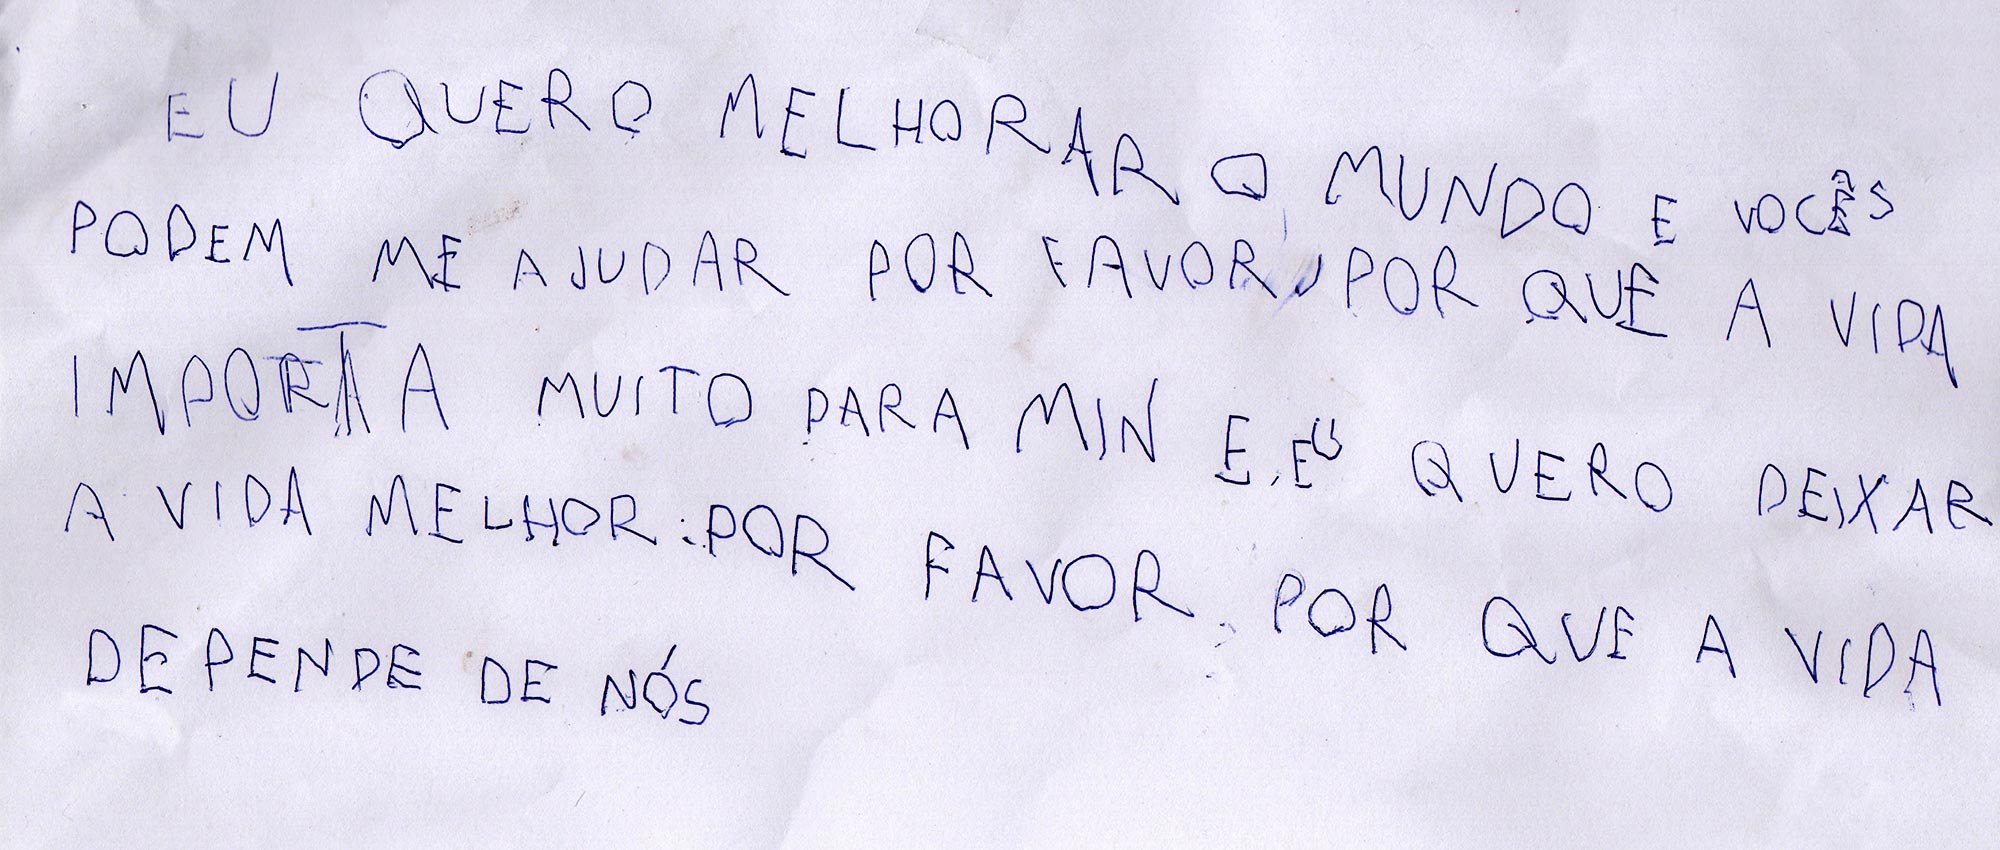 EU QUERO MELHORAR O MUNDO E VOCÊS
PODEM ME AJUDAR POR FAVOR, POR QUE A VIDA
IMPORTA MUITO PARA MIN E EU QUERO DEIXAR
A VIDA MELHOR. POR FAVOR, POR QUE A VIDA
DEPENDE DE NÓS